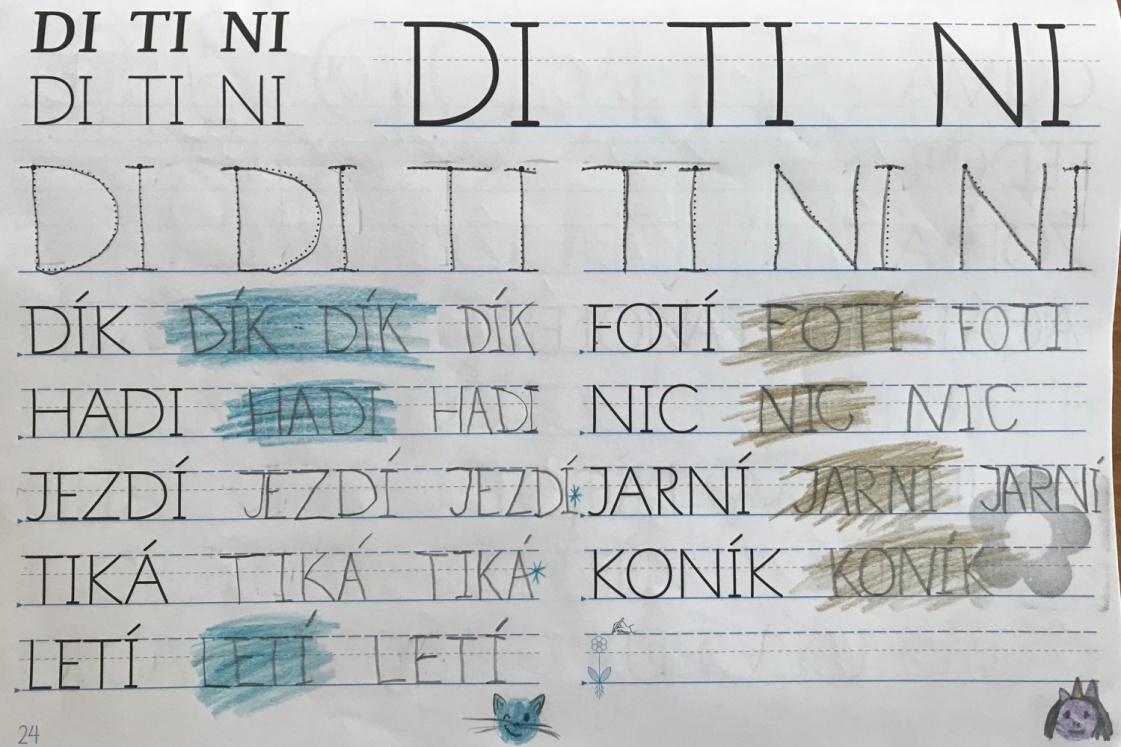 DI TI NI
DI TI NI
DI TI NI
DI DI TI TI NI NI
DÍK DÍK DÍK DÍK
HADI HADI HADI
JEZDÍ JEZDÍ JEZDÍ
TIKÁ TIKÁ TIKÁ
LETÍ LETÍ LETÍ
FOTÍ FOTÍ FOTÍ
NIC NIC NIC
JARNÍ JARNÍ JARNÍ
KONÍK KONÍK
24